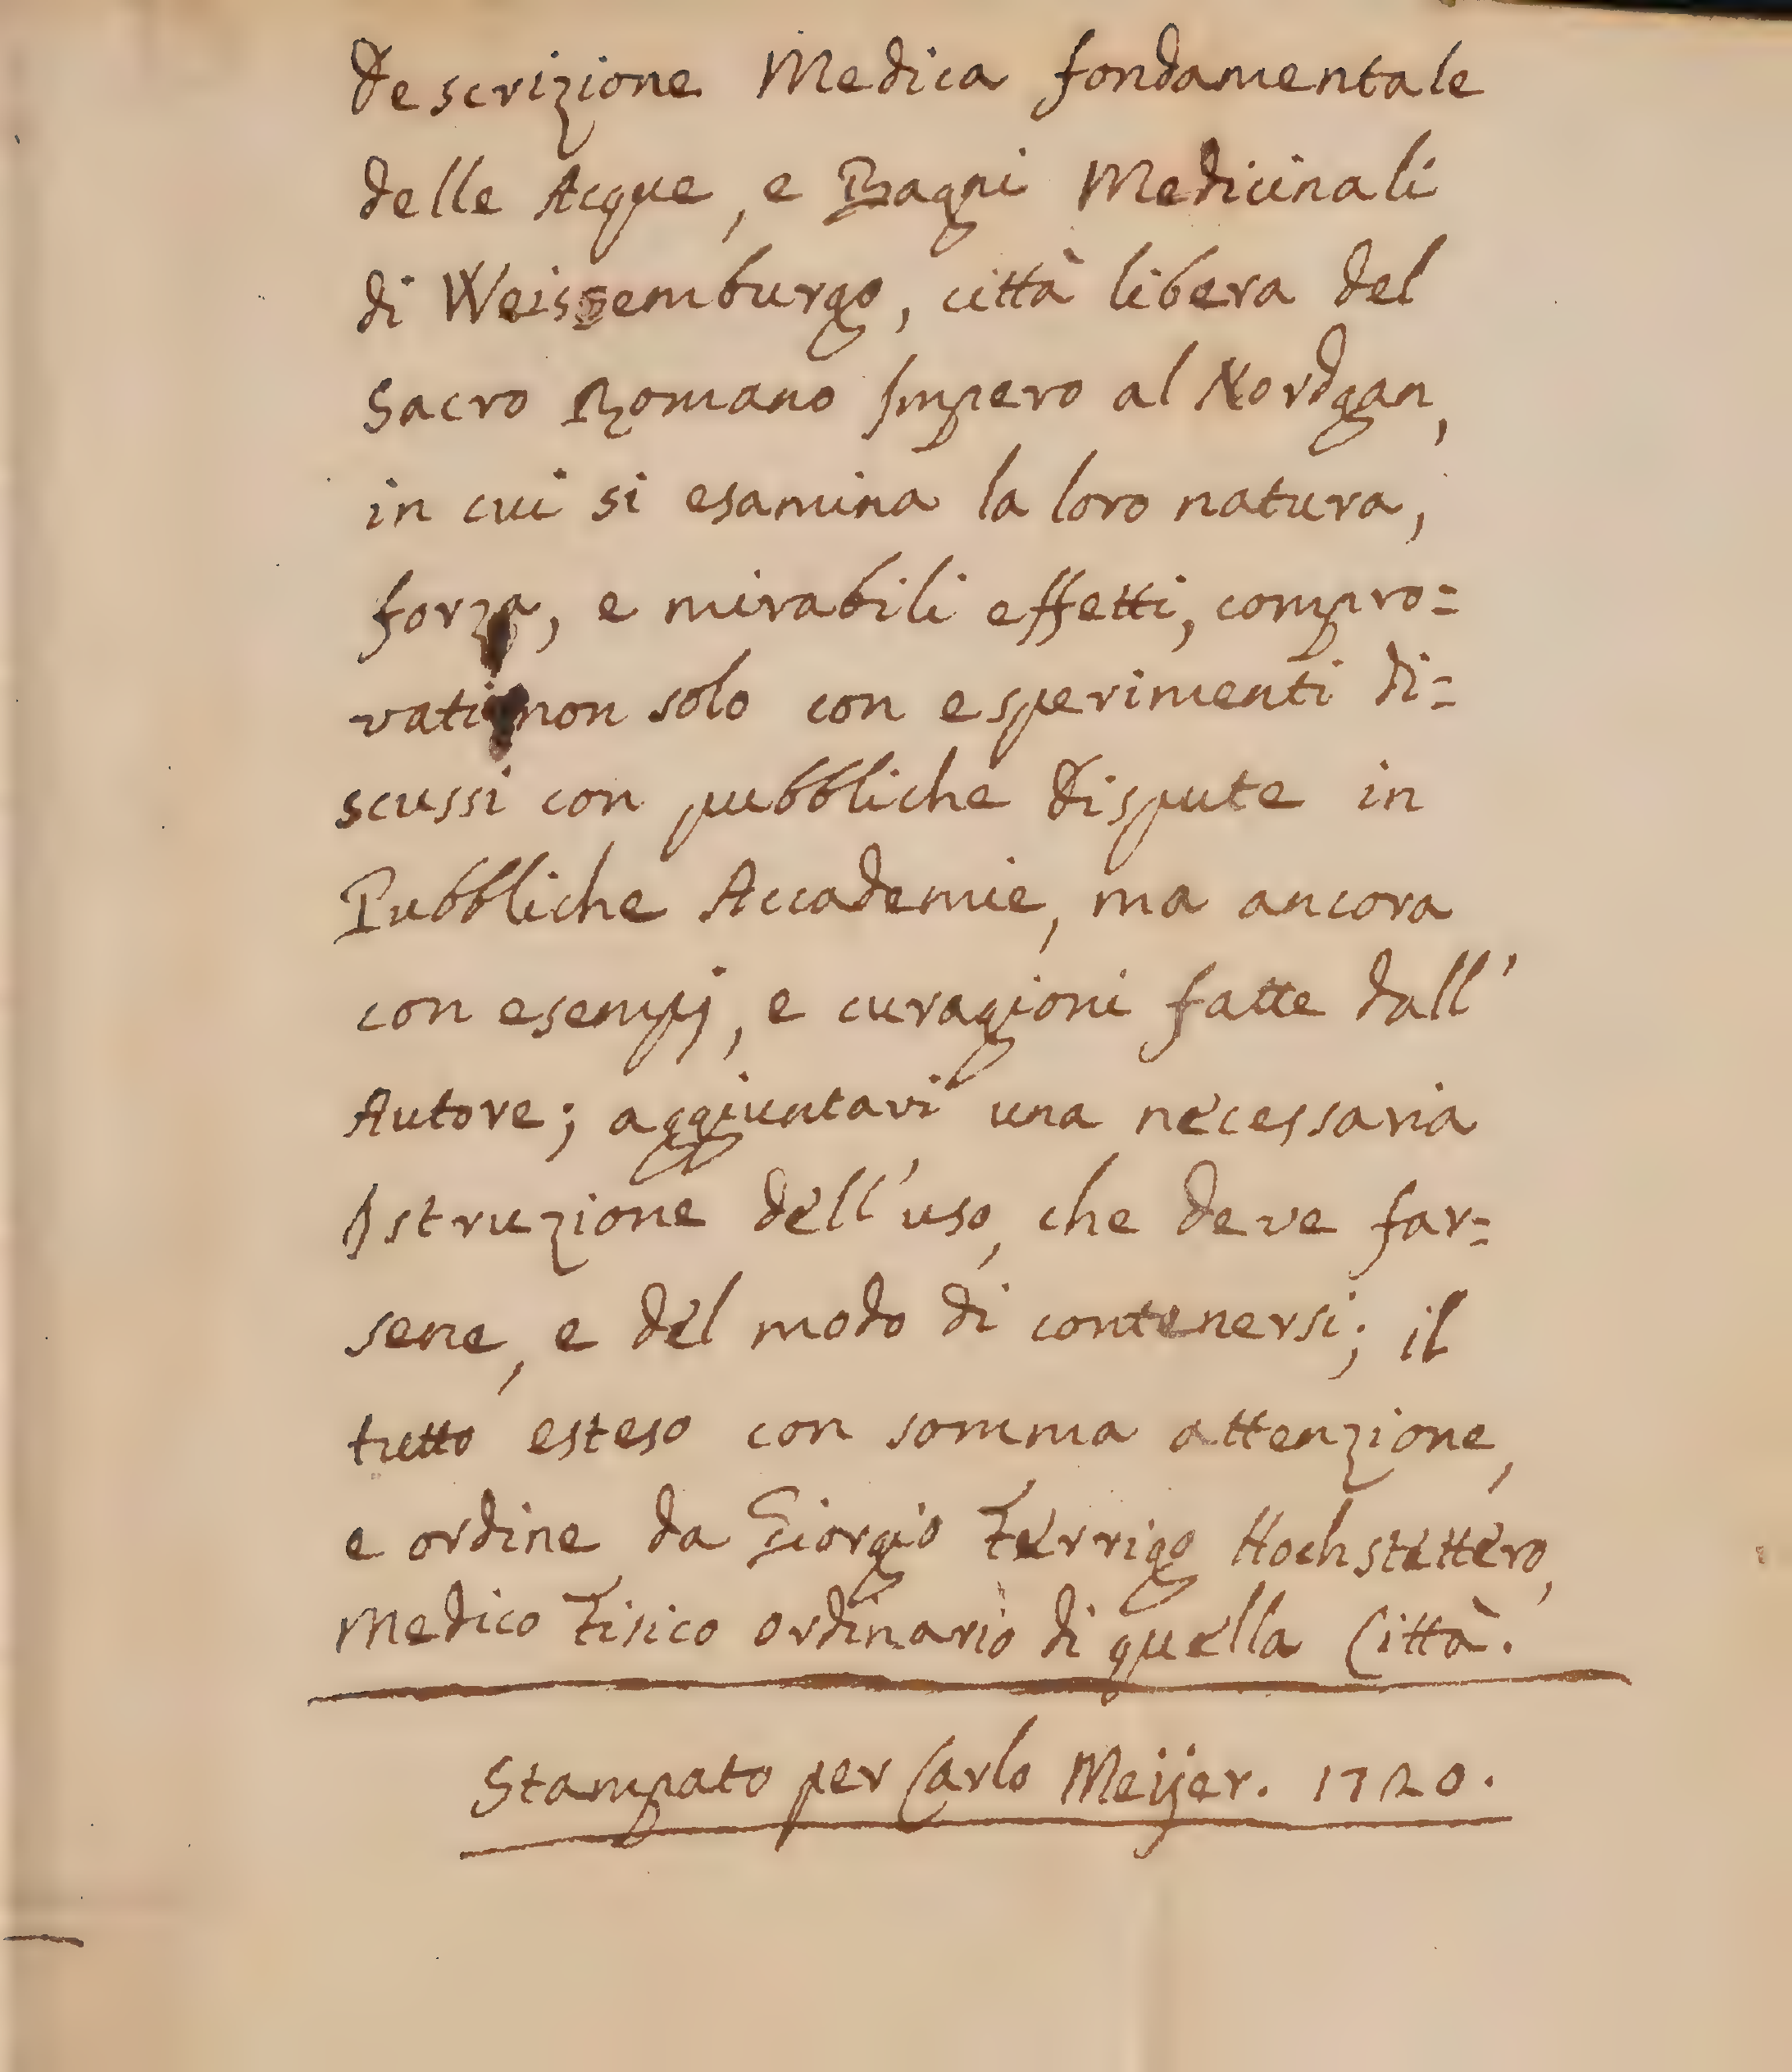 Descrizione Medica fondamentale
delle Acque, e Bagni Medicinali
di Weissemburgo, città libera del
Sacro Romano Impero al Nordgan,
in cui si esamina la loro natura,
forza, e mirabili effetti, compro=
vati non solo con esperimenti di=
scussi con pubbliche dispute in
Pubbliche Accademie, ma ancora
con esempj, e curagioni fatte dall'
Autore; aggiuntavi una necessaria
Istruzione dell'uso, che deve far=
sene, e del modo di contenersi; il
tutto esteso con somma attenzione,
e ordine da Giorgio Ferrigo Hochstettero,
Medico Fisico ordinario di quella Città.
Stampato per Carlo Meijer. 1720.